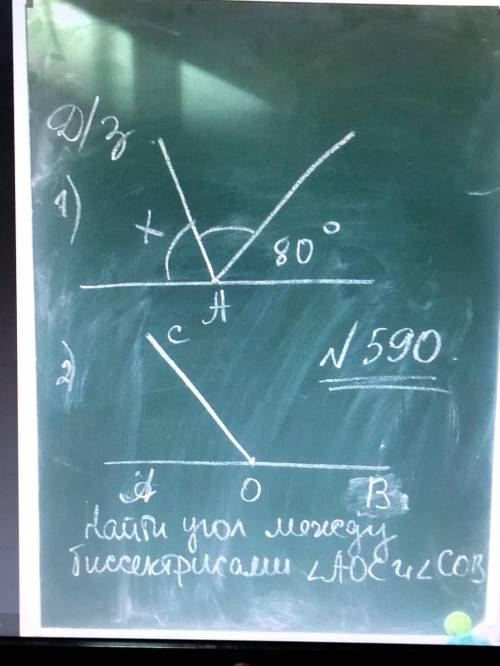 Д/з
1)
x
80°
A
2)
C
№590.
A O B
Найти угол между
биссектрисами ∠AOC и ∠COB